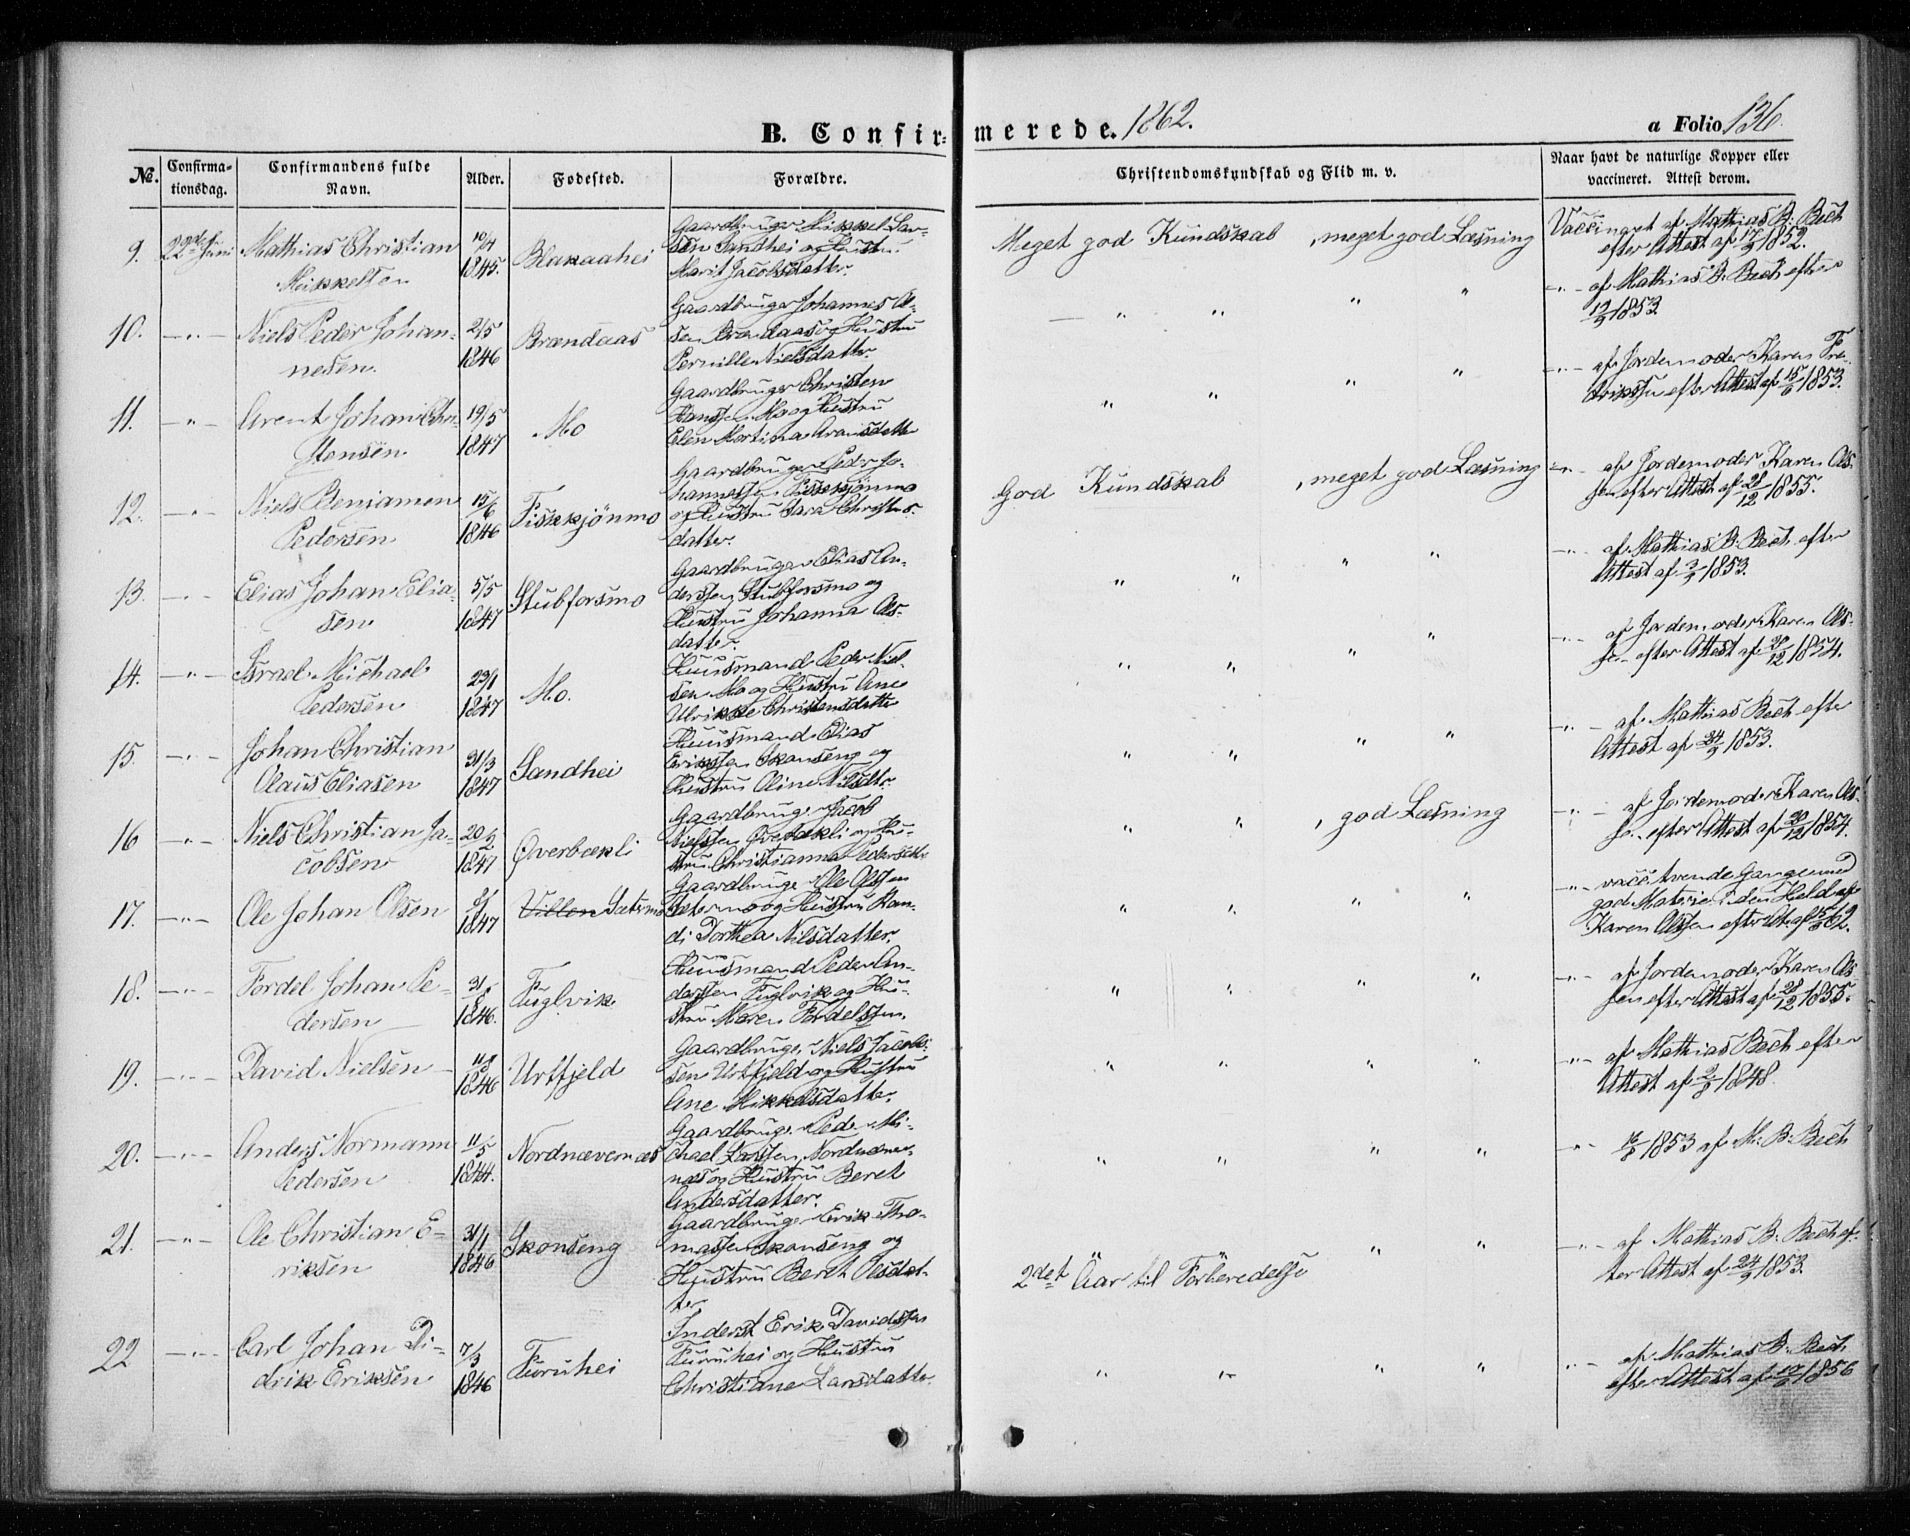 B. Confirmerede. 1862.
a Folio 136
No.
Confirmationsdag.
Confirmandens fulde Navn.
Alder.
Fødested.
Forældre.
Christendomskundskab og Flid m. v.
Naar havt de naturlige Kopper eller vaccineret. Attest derom.
9. 22de Juni Mathias Christian
Mikkelsen
10/4
1845.
Blakaahei
Gaardbruger Mikkel Lar-
sen Sandhei og Hustru
Marit Jacobsdatter.
Meget god Kundskab, meget god Læsning
Vaccineret af Mathias B. Bech
efter Attest af 17/9 1852.
10. -"- Niels Peder Johan-
nesen.
2/5
1846
Brændaas
Gaardbruger Johannes Ol-
sen Brendaas og Hustru
Pernille Nielsdatter.
" " " "
-"- af Mathias B. Bech efter
12/9 1853
11. -"- Arent Johan Chri-
stensen
19/5
1847
Mo
Gaardbruger Christen
Hanssen Mo og Hustru
Elen Martina Arensdatter
" " " "
-"- af Jordemoder Karen Fre-
driksen efter Attest af 15/6 1853.
12. -"- Niels Benjamen
Pedersen
15/6
1846
Fiskkjönmo
Gaardbruger Peder Jo-
hannessen Fiskkjönmo
og Hustru Sara Christens-
datter.
God Kundskab, meget god Læsning
-"- af Jordemoder Karen Ols-
sen efter Attest af 28/12 1855.
13. -"- Elias Johan Elia-
sen
5/5
1847
Stubforsmo
Gaardbruger Elias An-
derssen Stubforsmo og
Hustru Johanna Ols-
datter.
" " " "
-"- af Mathias B. Bech efter
Attest af 1853.
14. -"- Israel Michael
Pedersen
29/1
1847
Mo.
Huusmand Peder Niel-
sen Mo og Hustru Ane
Ulrikke Christensdatter
" " " "
-"- af Jordemoder Karen Ols-
sen efter Attest af 20/12 1854.
15. -"- Johan Christian
Olaus Eliasen
31/3
1847
Sandhei
Huusmand Elias
Erikssen Skonseng og
Hustru Oline Nilsdtr.
" " " "
-"- af Mathias Bech efter
Attest af 24/9 1853.
16 -"- Niels Christian Ja-
cobsen
20/2
1847
Øverbækli
Gaardbruger Jacob
Nielssen Øverbækli og Hu-
stru Christianna Pedersdtr
" " , god Læsning
-"- af Jordemoder Karen Ols-
sen efter Attest af 20/12 1854.
17. -"- Ole Johan Olsen
1847
Villen Sætermo
Gaardbruger Ole Olssen
Sætermo og Hustru Ran-
di Dorthea Nilsdatter.
" " " "
-"- vacci tvende Gange med
god Materie i den Held af
Karen Olssen efter At. af 62.
18. -"- Fordel Johan Pe-
dersen
31/8
1846.
Fuglvik
Huusmand Peder An-
derssen Fuglvik og Hu-
stru Maren Fordelssen.
" " " "
-"- af Jordemoder Karen Ols
sen efter Attest af 28/12 1855.
19. -"- David Nielsen
11/8
1846
Urtfjeld
Gaardbruger Niels Jacob-
sen Urtfjeld og Hustru
Ane Mikkelsdatter.
" " " "
-"- af Mathias Bech efter
Attest af 1848.
20. -"- Anders Normann
Pedersen
11/5
1844.
Nordnævernæs
Gaardbruger Peder Mi-
chael Larssen, Nordnæver-
næs og Hustru Beret
Andersdatter.
" " " "
-"- 1853 af M. B. Bech
21. -"- Ole Christian E-
riksen
31/1
1846
Skonseng
Gaardbruger Erik Tho-
massen Skonseng og
Hustru Beret Olsdat-
ter
2det Aar til Forberedelse " "
-"- af Mathias B. Bech ef-
ter Attest af 24/9 1853.
22 -"- Carl Johan Di-
drik Eriksen
7/3
1846
Furuhei
Inderst Erik Davidssen
Furuhei og Hustru
Christiane Larsdatter.
" " " "
-"- af Mathias B. Bech
efter Attest af 1856